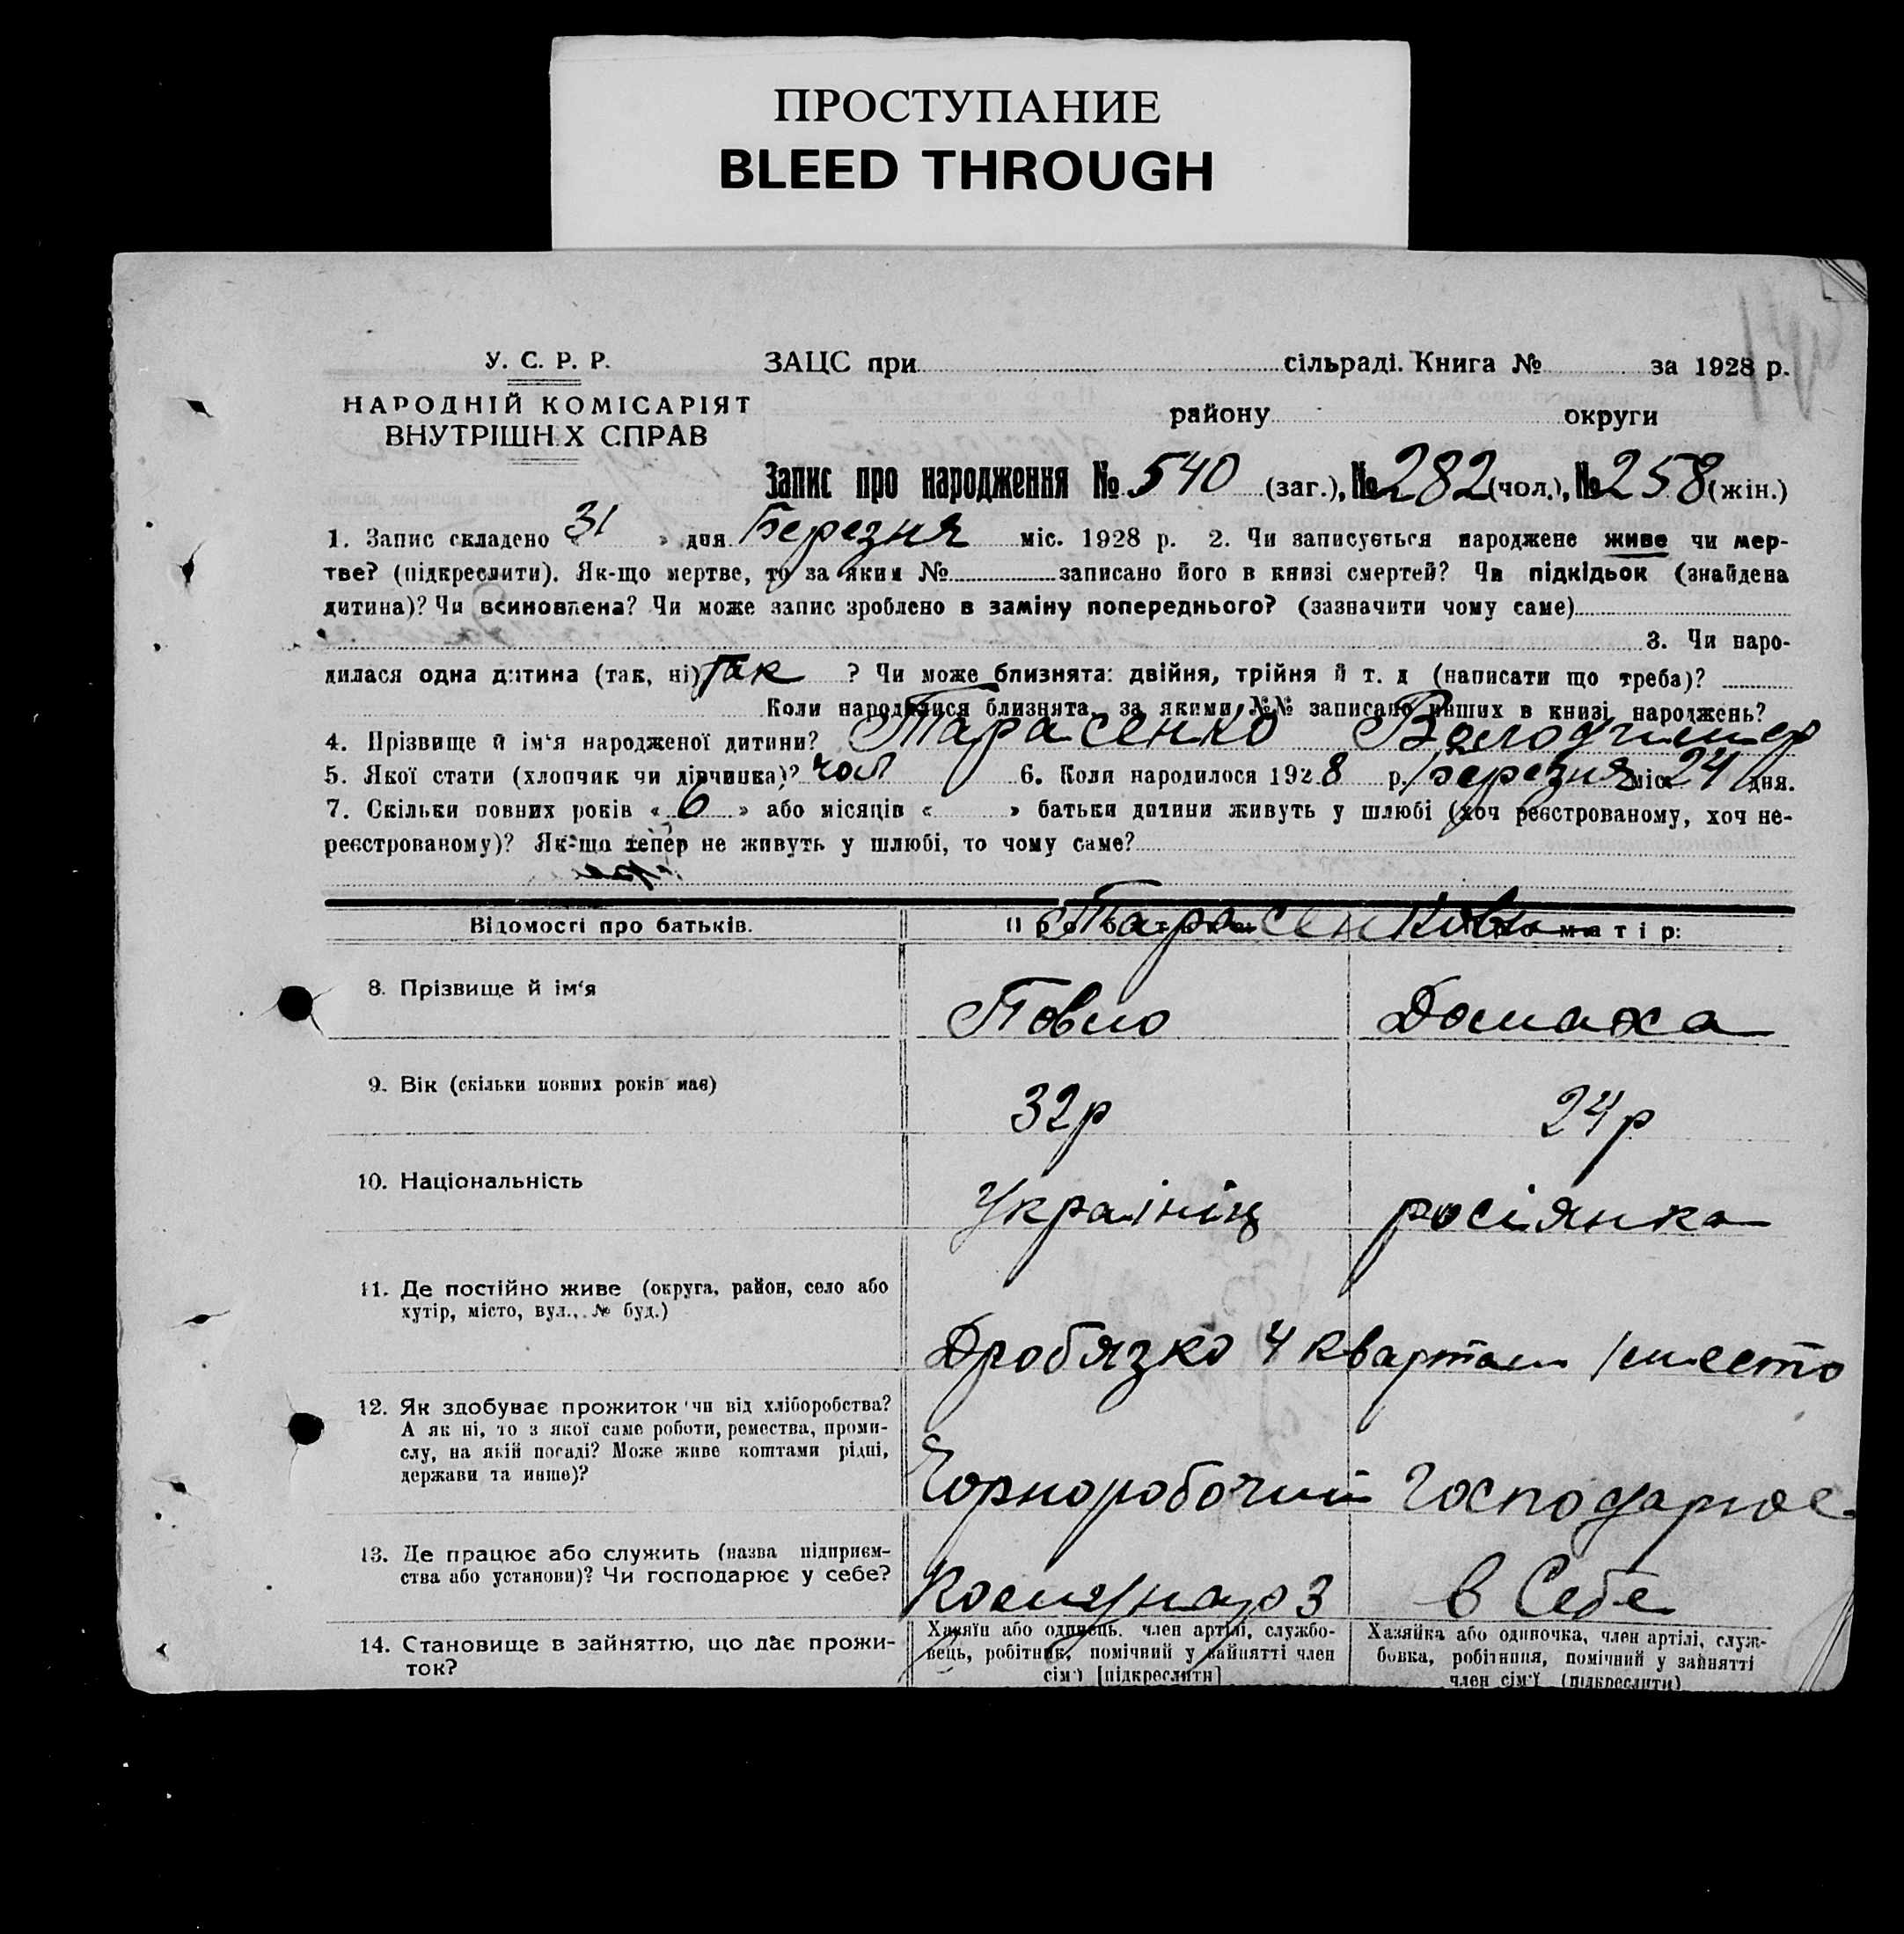 ПРОСТУПАНИЕ
BLEED THROUGH
У. С. Р. Р.
НАРОДНІЙ КОМІСАРІЯТ
ВНУТРІШН.Х СПРАВ
ЗАЦС при сільраді. Книга № за 1928 р.
району округи
Запис про народження № 540 (заг.), № 282 (чол.), № 258 (жін.)
1. Запис складено « 31 » дня Березня міс. 1928 р. 2. Чи записується народжене живе чи мер-
тве? (підкреслити). Як-що мертве, то за яким № записано його в книзі смертей? Чи підкідьок (знайдена
дитина)? Чи всиновлена? Чи може запис зроблено в заміну попереднього? (зазначити чому саме)
3. Чи наро-
дилася одна дитина (так, ні) Так ? Чи може близнята: двійня, трійня й т. д (написати що треба)?
Коли народилися близнята, за якими №№ записано инших в книзі народжень?
4. Прізвище й ім‘я народженої дитини? Тарасенко Володимир
5. Якої стати (хлопчик чи дівчинка)? чол 6. Коли народилося 1928 р. Березня міс. 24 дня.
7. Скільки повних років « 6 » або місяців « » батьки дитини живуть у шлюбі (хоч реєстрованому, хоч не-
реєстрованому)? Як-що тепер не живуть у шлюбі, то чому саме?
Відомості про батьків. Про батька Про матір:
Тарасенкови
8. Прізвище й ім‘я Повло Домаха
9. Вік (скільки повних років має) 32р 24р
10. Національність Українiц росіянка
11. Де постійно живе (округа, район, село або
хутір, місто, вул., № буд.)
Дробязко 4 квартал /место
12. Як здобуває прожиток чи від хліборобства?
А як ні, то з якої саме роботи, ремества, проми-
слу, на якій посаді? Може живе коштами рідні,
держави та инше)?
Чорноробочий Господарює
13. Де працює або служить (назва підприєм-
ства або установи)? Чи господарює у себе?
Комунар З в Себе
14. Становище в зайняттю, що дає прожи-
ток?
Хазяїн або одинець, член артілі, службо-
вець, робітник, помічний у зайнятті член
сім‘ї [підкреслити]
Хазяйка або одиночка, член артілі, служ-
бовка, робітниця, помічний у зайнятті
член сім‘ї (підкреслити)